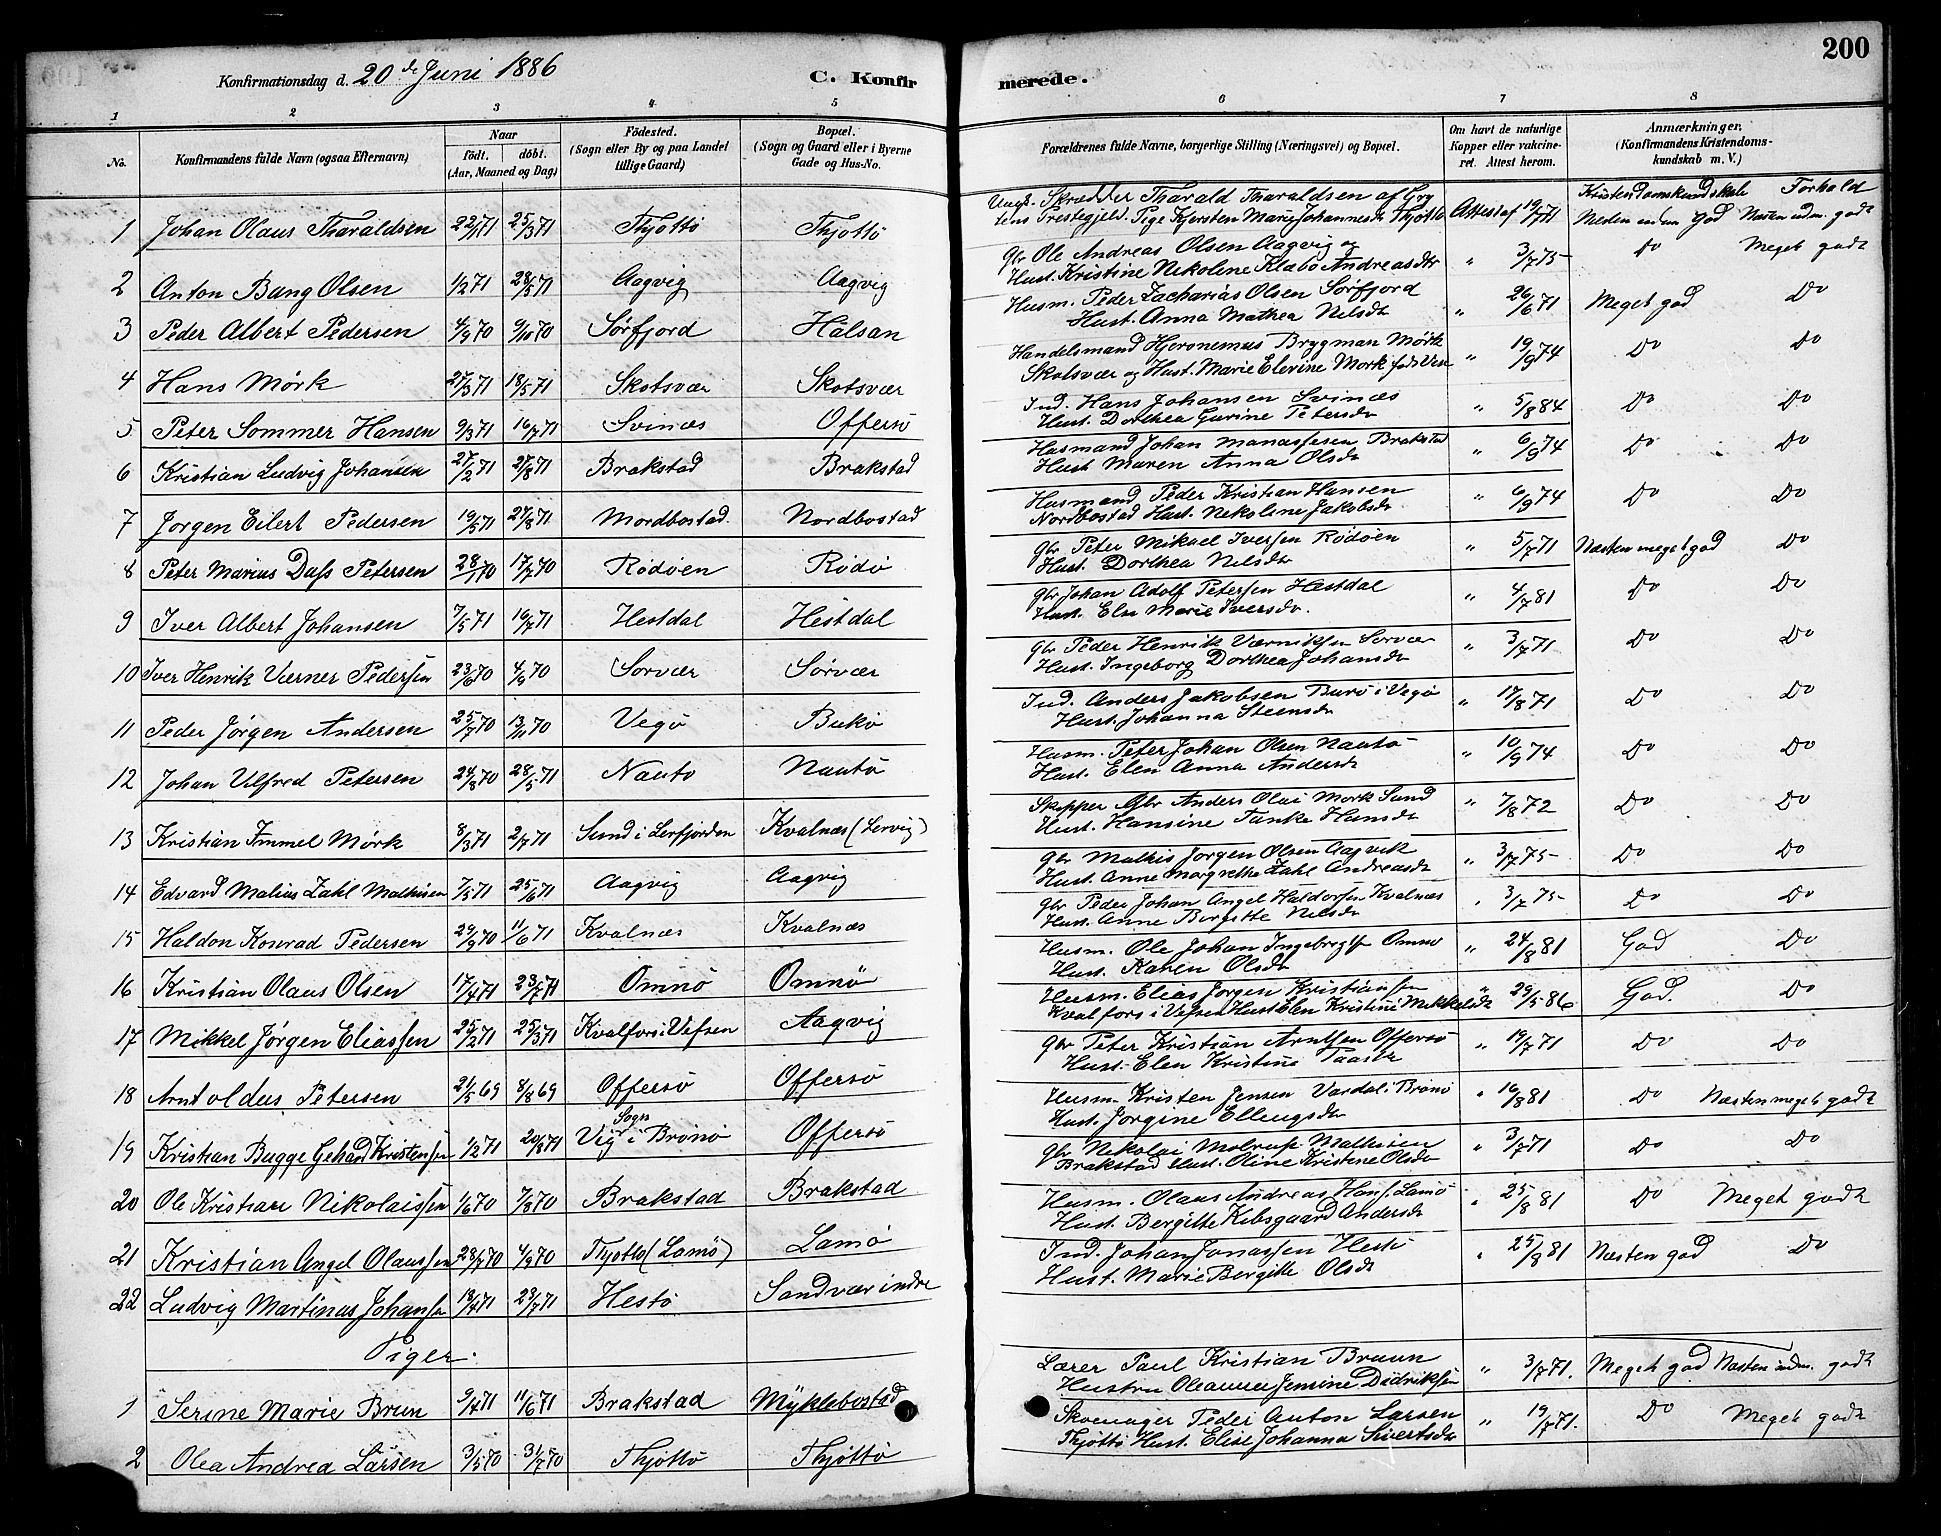 200
Konfirmationsdag d. 20de Juni 1886 C. Konfirmerede.
1 2 3 4 5 6 7 8
No. Konfirmandens fulde Navn (ogsaa Efternavn) Naar födt. döbt. (Aar, Maaned og Dag) Födested. (Sogn eller By og paa Landet tillige Gaard) Bopæl. (Sogn og Gaard eller i Byerne Gade og Hus-No. Forældrenes fulde Navne, borgerlige Stilling (Næringsvei) og Bopæl. Om havt de naturlige Kopper eller vakcineret. Attest herom. Anmærkninger. (Konfirmandens Kristendomskundskab m. V.)
Kristendomskundskab Forhold
1 Johan Olaus Tharaldsen 22/1 71 25/3 71 Thjöttö Thjöttö Ungk. Skrædder Tharald Tharaldsen af Gry
tens Prestegjeld. Pige Kjersten Marie Johannesdr Thjöttö Attest af 19/7 71 Nesten inden God Næsten udm. godt
2 Anton Bang Olsen 1/2 71 28/5 71 Aagvig Aagvig Gbr Ole Andreas Olsen Aagvig og
Hust. Kristine Nikoline Klæbo Andreasdtr " 3/7 75 Do Meget godt
3 Peder Albert Pedersen 4/9 70 9/10 70 Sörfjord Halsan Husm. Peder Zacharias Olsen Sörfjord
Hust. Anna Mathea Nilsdr " 26/6 71 Meget god Do
4 Hans Mörk 27/3 71 18/5 71 Skotsvær Skotsvær Handelsmand Hjeronemus Brygman Mörk
Skotsvær og Hust. Marie Elevine Mork " 19/9 74 Do Do
5 Peter Sommer Hansen 9/3 71 16/7 71 Svinæs Offersö Ind. Hans Johansen Svinæs
Hust. Dorthea Gurine Petersdr " 5/8 84 Do Do
6 Kristian Ludvig Johansen 27/2 71 27/8 71 Brakstad Brakstad Husmand Johan Manassesen Brakstad
Hust Maren Anna Olsdr " 6/9 74 Do Do
7 Jörgen Eilert Pedersen 19/5 71 27/8 71 Nordbostad. Nordbostad Husmand Peder Kristian Hansen
Nordbostad Hust. Nekoline Jakobsdr " 6/9 74 Do Do
8 Peter Marius Dass Petersen 28/1 70 17/7 70 Rödöen Rödö Gbr Peter Mikael Iversen Rödöen
Hust. Dorthea Nilsdr " 5/7 71 Næsten meget god Do
9 Iver Albert Johansen 7/5 71 16/7 71 Hestdal Hestdal Gbr Johan Adolf Petersen Hestdal
Hust. Elen Marie Iversdr. " 4/7 81 Do Do
10 Iver Henrik Værner Pedersen 23/6 70 4/9 70 Sorvær Sörvær Gbr Peder Henrik Værniksen Sorvær
Hust. Ingeborg Dorthea Johansdr " 3/7 71 Do Do
11 Peder Jörgen Andersen 25/7 70 13/11 70 Vegö Bukö Ind. Anders Jakobsen Burö i Vegö
Hust. Johanna Steensdr " 17/8 71 Do Do
12 Johan Vilfred Petersen 24/8 70 28/5 71 Nautö Nautö Husm. Peter Johan Olsen Nautö
Hust. Elen Anna Andersdr " 10/9 74 Do Do
13 Kristian Immel Mörk 8/3 71 2/7 71 Sund i Lerfjorden Kvalnæs (Lervig) Skipper Gbr Anders Olai Mork Sund
Hust. Hansine Tanke Hansdr " 7/8 72 Do Do
14 Edvard Malius Zahl Mathisen 7/5 71 25/6 71 Aagvig Aagvig Gbr Mathis Jorgen Olsen Aagvik
Hust. Anne Margrethe Zahl Andreasdr " 3/7 75 Do Do
15 Haldon Konrad Pedersen 29/9 70 11/6 71 Kvalnæs Kvalnæs Gbr Peder Johan Angel Haldorsen Kvalnæs
Hust. Anne Bergitte Nilsdr " 3/7 75 Do Do
16 Kristian Olaus Olsen 17/4 71 23/7 71 Omnö Omnö Husm. Ole Johan Ingebregtsen Omnö
Hust. Karen Olsdr " 24/8 81 God Do
17 Mikkel Jörgen Eliassen 25/2 71 25/3 71 Kvalfors i Vefsen Aagvig Husm. Elias Jorgen Kristiansen
Kvalfors i Vefsen Hust Elen Kristine Mikkelsdr " 29/5 86 God. Do
18 Arnt oldus Petersen 21/5 69 8/8 69 Offersö Offersö Gbr Peter Kristian Arntsen Offersö
Hust. Elen Kristine " 19/7 71 Do Do
19 Kristian Bugge Gehard Kristensen 1/2 71 20/8 71 Vig Sogn i Brönö Offersö Husm. Kristen Jensen i Brönö
Hust. Jorgine Ellingsdr " 16/8 81 Do Næsten meget godt
20 Ole Kristian Nikolaissen 1/6 70 7/8 70 Brakstad Brakstad Gbr Nikolai Mathisen
Brakstad Hust. Oline Kristine Olsdr " 3/7 71 Do Do
21 Kristian Angel Olaussen 28/7 70 4/9 70 Thjöttö (Lamö) Lamö Husm. Olaus Andreas Hans. Lamö
Hust. Bergitte Kibsgaard Andersdr " 25/8 81 Do Meget godt
22 Ludvig Martinus Johansen 13/4 71 23/7 71 Hestö Sandvær indre Ind. Johan Jonassen Hestö
Hust. Marie Bergitte Olsdr " 25/8 81 Næsten god Do
Piger.
1 Serine Marie Brun 9/4 71 11/6 71 Brakstad Myklebostad Lærer Paul Kristian Bruun
Hustru Oleanna Jensine Didriksen " 3/7 71. Meget god Næsten udm. godt
2 Olea Andrea Larsen 3/5 70 31/7 70 Thjöttö Thjöttö Skvenager Peder Anton Larsen
Thjöttö Hust. Elise Johanna Siversdr " 19/7 71. Do Meget godt